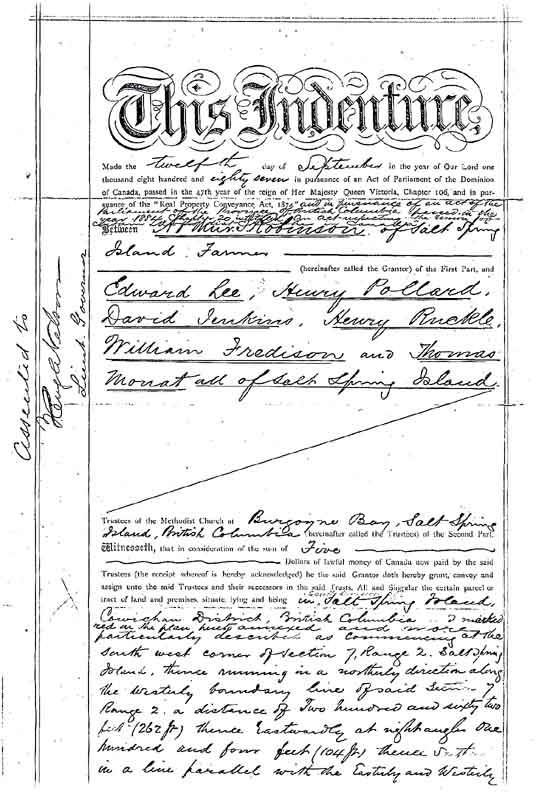 This Indenture,
Made the twelfth day of September in the year of Our Lord one
thousand eight hundred and eighty seven in pursuance of an Act of Parliament of the Dominion
of Canada, passed in the 47th year of the reign of Her Majesty Queen Victoria, Chapter 106, and in pur-
suance of the "Real Property Conveyance Act, 1874" and in pursuance of an act of the
Parliament of the Province of British Columbia passed in the
year
Between Robinson of Salt Spring
Island Farmer
(hereinafter called the Grantor) of the First Part, and
Edward Lee, Henry Pollard,
David Jenkins, Henry Ruckle,
William Fredison and Thomas
Mouat all of Salt Spring Island
Trustees of the Methodist Church at Burgoyne Bay, Salt Spring
Island, British Columbia (hereinafter called the Trustees) of the Second Part.
Witnesseth, that in consideration of the sum of Five
Dollars of lawful money of Canada now paid by the said
Trustees (the receipt whereof is hereby acknowledged) he the said Grantor doth hereby grant, convey and
assign unto the said Trustees and their successors in the said Trusts, All and Singular the certain parcel or
tract of land and premises, situate, lying and being in Salt Spring Island,
Cowichan District, British Columbia marked
red on the plan annexed and more
particularly described as commencing at the
south west corner of Section 7, Range 2. Salt Spring
Island, thence running in a northerly direction along
the Westerly boundary line of said Section 7
Range 2. a distance of Two hundred and sixty two
feet (262 ft) thence Eastwardly at right angles One
hundred and four feet (104 ft) thence
in a line parallel with the Easterly and Westerly
assented to
Lieut Governor